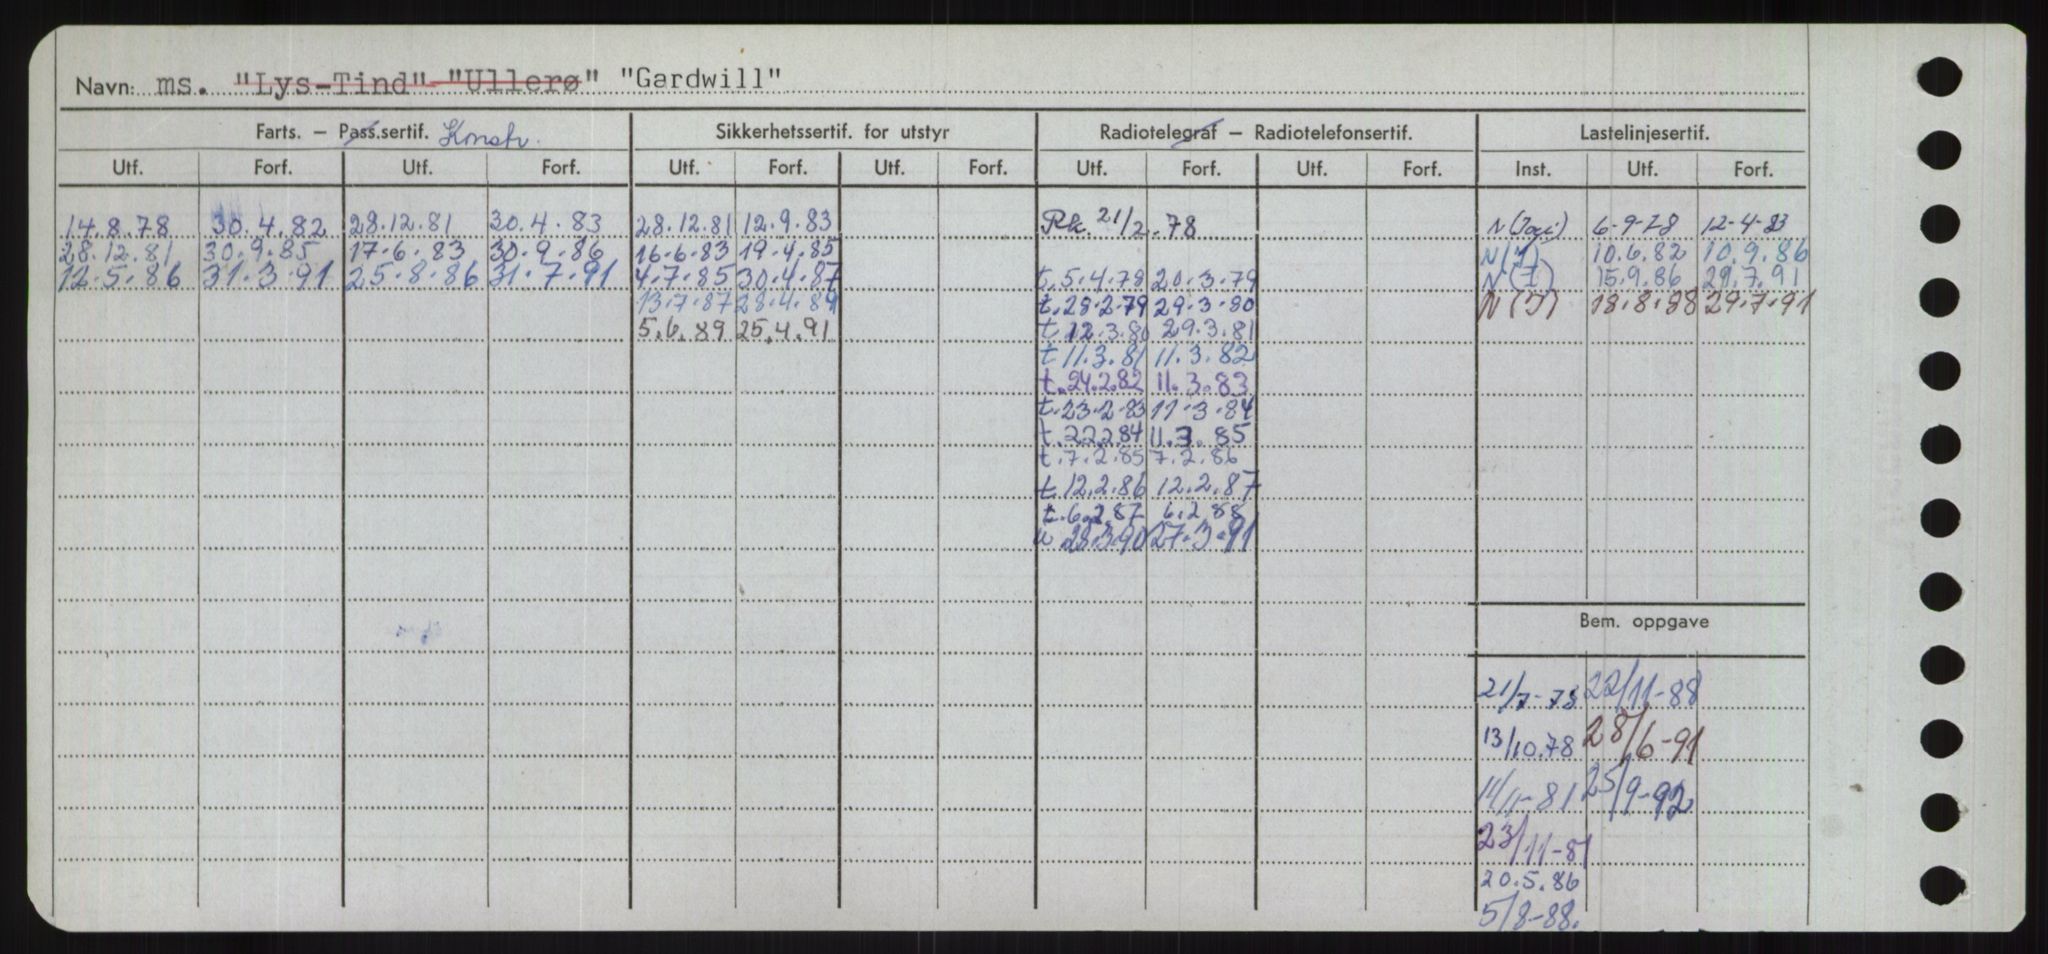 Navn: ms. "Lys-Tind" "Ullerø" "Gardwill"
Farts. – Pass.sertif. Konstr. Sikkerhetssertif. for utstyr Radiotelegraf – Radiotelefonsertif. Lastelinjesertif.
Utf. Forf. Utf. Forf. Utf. Forf. Utf. Forf. Utf. Forf. Utf. Forf. Inst. Utf. Forf.
14.8.78 30.4.82 28.12.81 30.4.83 28.12.81 12.9.83 Rk. 21/2.78 6-9-78 12-4-83
28.12.81 30.9.85 17.6.83 30.9.86 16.6.83 19.4.85 N(I) 10.6.82 10.9.86
12.5.86 31.3.91 25.8.86 31.7.91 4.7.85 30.4.87 5.4.78 20.3.79 N(I) 15.9.86 29.7.91
13.7.87 28.4.89 t.28.2.79 29.3.80 N(I) 18.8.88 29.7.91
5.6.89 25.4.91 t 12.3.80 29.3.81
t 11.3.81 11.3.82
t.24.2.82 11.3.83
t.23.2.83 11.3.84
t.22.2.84 11.3.85
t.7.2.85 7.2.86
t.12.2.86 12.2.87
t.6.2.87 6.2.88
28.3.90 27.3.91
Bem. oppgave
21/7-78 22/11-88
13/10.78 28/6-91
11/11-81 25/9-92
23/11-81
20.5.86
5/8-88.